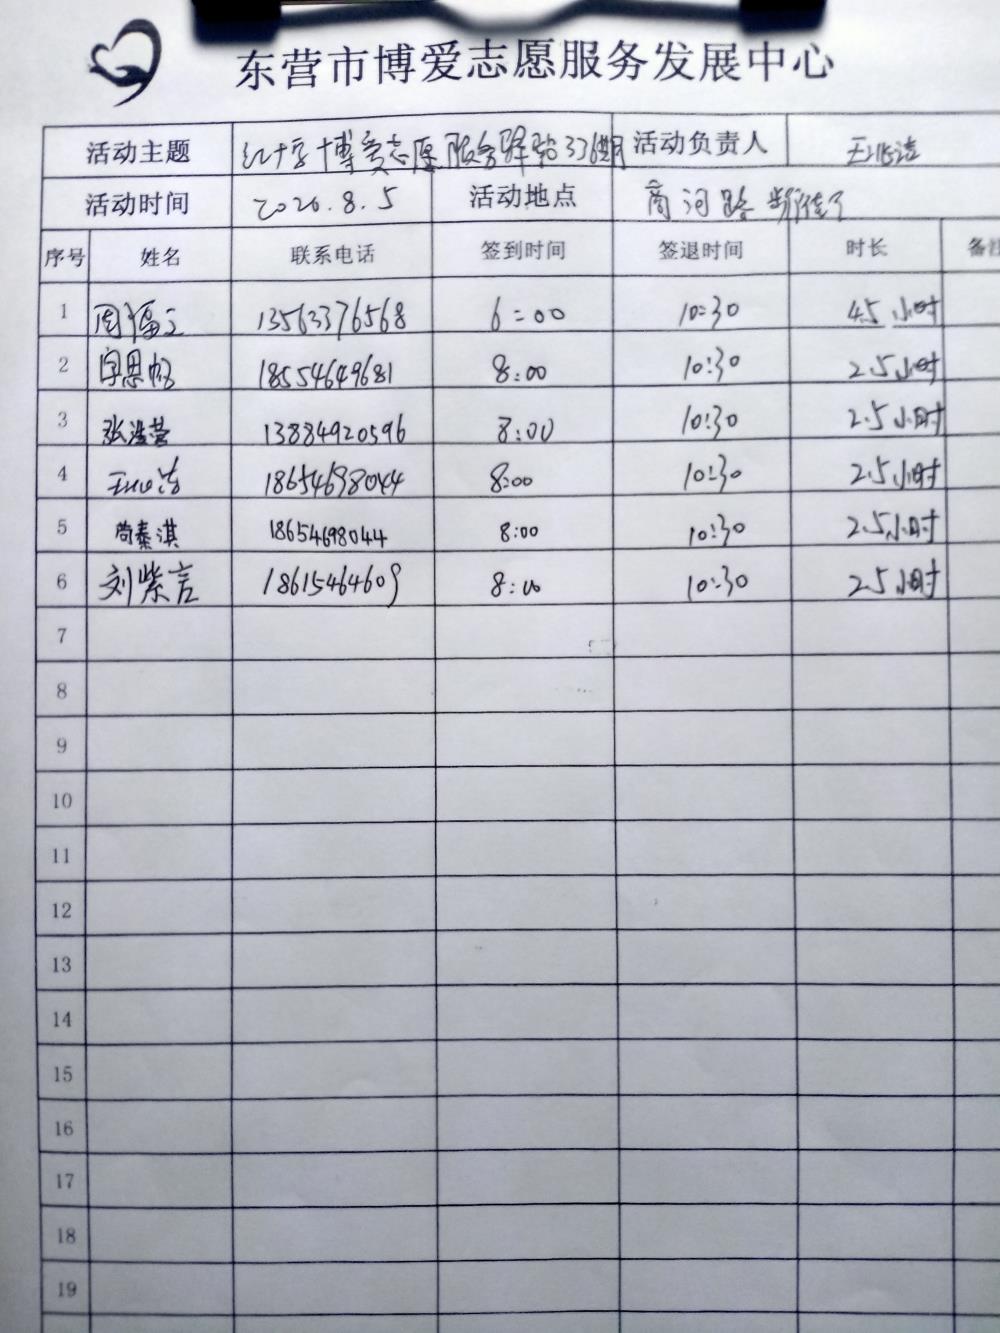 东营市博爱志愿服务发展中心
活动主题 红十字博爱志愿服务驿站336期 活动负责人
活动时间 2026.8.5 活动地点 商河路
序号 姓名 联系电话 签到时间 签退时间 时长 备注
1 13563376568 6:00 10:30 4.5小时
2 18554649681 8:00 10:30 2.5小时
3 张浩营 13884920596 8:00 10:30 2.5小时
4 18654698044 8:00 10:30 2.5小时
5 尚秦淇 18654698044 8:00 10:30 2.5小时
6 刘紫言 18615464609 8:00 10:30 2.5小时
7
8
9
10
11
12
13
14
15
16
17
18
19